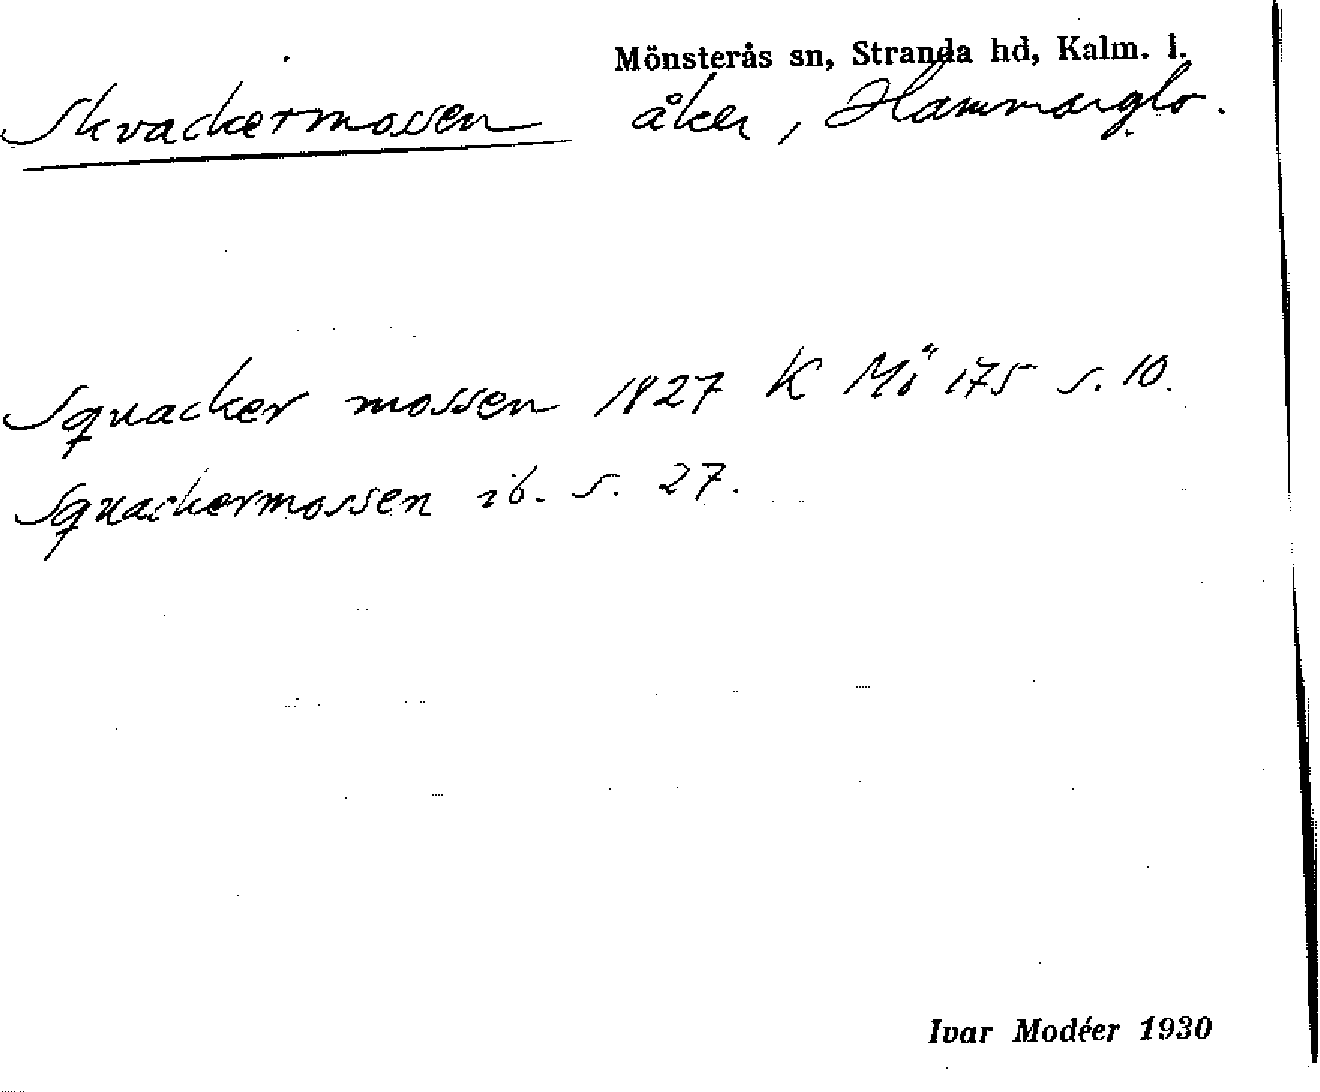 Mönsterås sn, Stranda hd, Kalm. l.
Skvackermossen åker, Hammarglo.
Squacker mossen 1827 K Mö 175 s. 10.
Squackermossen ib. s. 27.
Ivar Modéer 1930